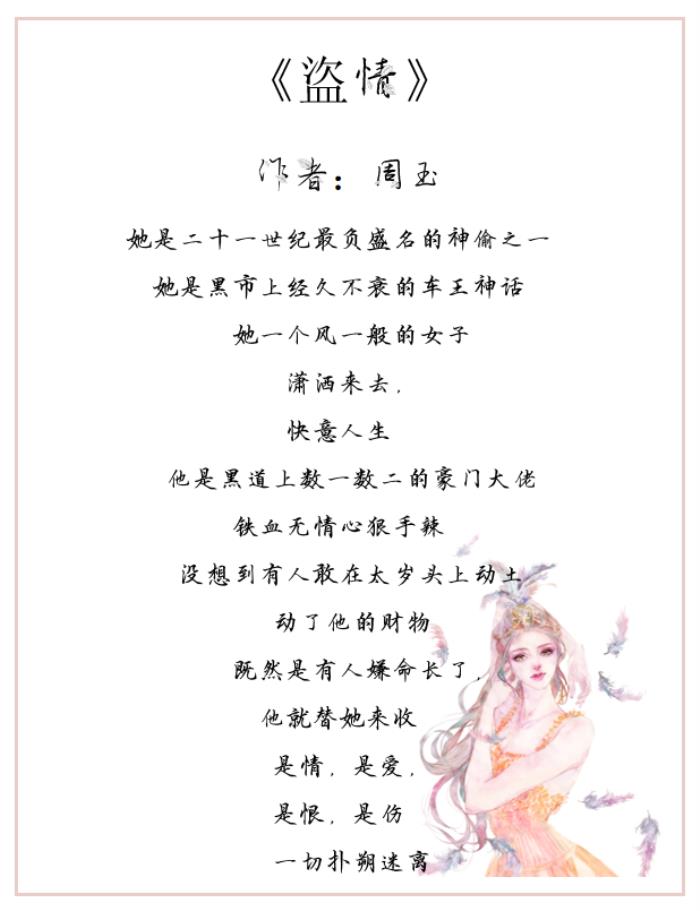 《盗情》
作者：周玉
她是二十一世纪最负盛名的神偷之一
她是黑市上经久不衰的车王神话
她一个风一般的女子
潇洒来去，
快意人生
他是黑道上数一数二的豪门大佬
铁血无情心狠手辣
没想到有人敢在太岁头上动土
动了他的财物
既然是有人嫌命长了，
他就替她来收
是情，是爱，
是恨，是伤
一切扑朔迷离